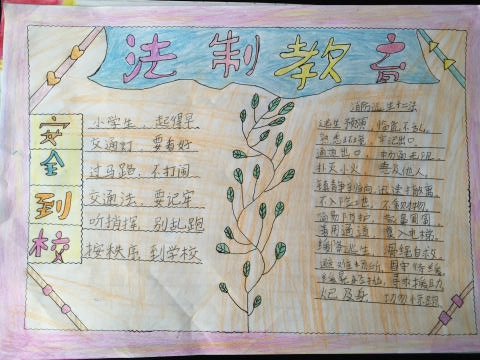 法制教育
安全到校
小学生，起得早
交通灯，要看好
过马路，不打闹
交通法，要记牢
听指挥，别乱跑
按秩序 到学校
消防逃生十二法
逃生预演，临危不乱
熟悉环境，牢记出口
通道出口，畅通无阻
扑灭小火，惠及他人
迅速撤离
不入险地，不贪财物
简易防护，
善用通道，莫入电梯
缓降逃生，滑绳自救
避难场所，固守待援
寻求援助
切勿惊跑